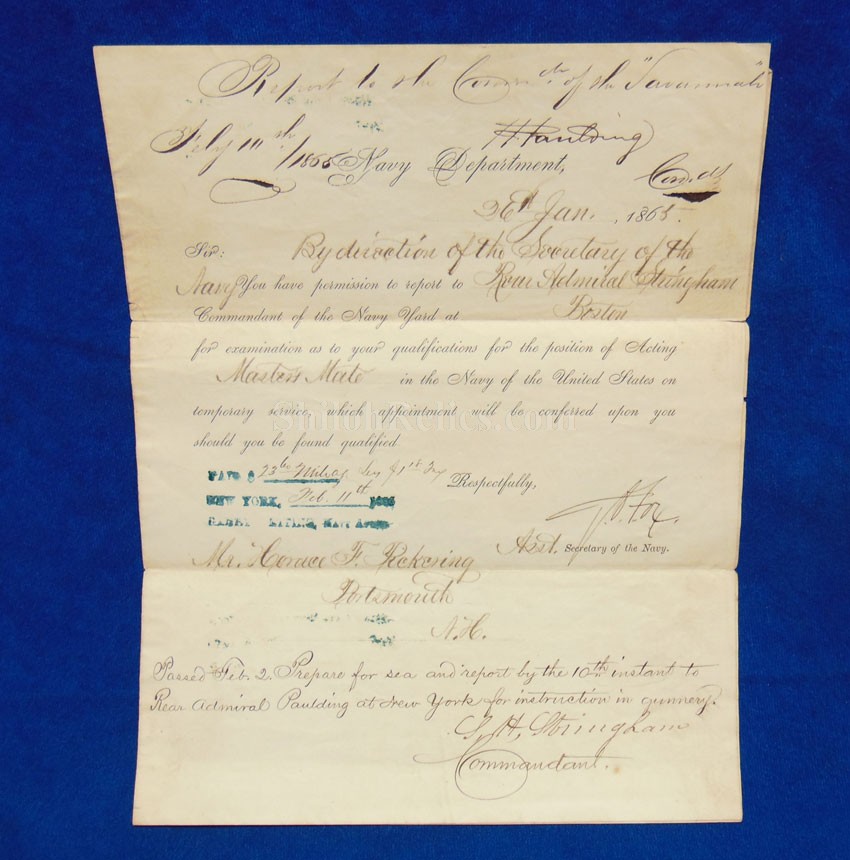 Report to the Comm'dr of the "Savannah"
Feby 11th/1865
H Paulding
Navy Department,
Comdt
26th Jan., 1865.
Sir: By direction of the Secretary of the
Navy You have permission to report to Rear Admiral Stringham
Commandant of the Navy Yard at Boston
for examination as to your qualifications for the position of Acting
Masters Mate in the Navy of the United States on
temporary service, which appointment will be conferred upon you
should you be found qualified
ShilohRelics.com
PAID $ 23 60 Mileage
Respectfully,
NEW YORK, Feb. 11th 1865
G. V. Fox.
Asst. Secretary of the Navy.
Mr. Horace F. Pickering
Portsmouth
N.H.
Passed Feb. 2. Prepare for sea and report by the 10th instant to
Rear Admiral Paulding at New York for instruction in gunnery.
S. H. Stringham
Commandant.